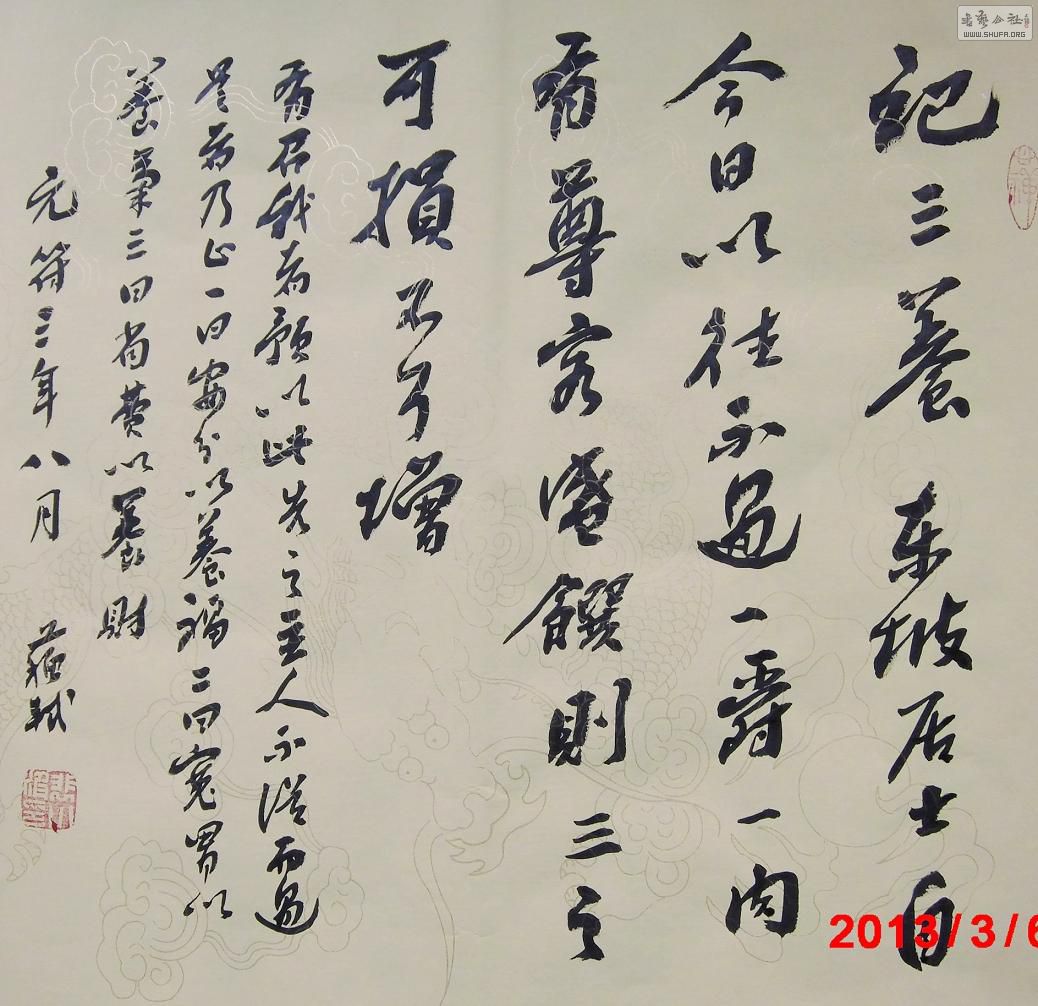 記三養 東坡居士自
今日以往不過一爵一肉
有尊客盛饌則三之
可損不可增
有召我者預以此先之主人不從而過
是者乃止一曰安分以養福二曰寬胃以
養氣三曰省費以養財
元符三年八月 蘇軾
書藝公社
WWW.SHUFA.ORG
2013/3/6